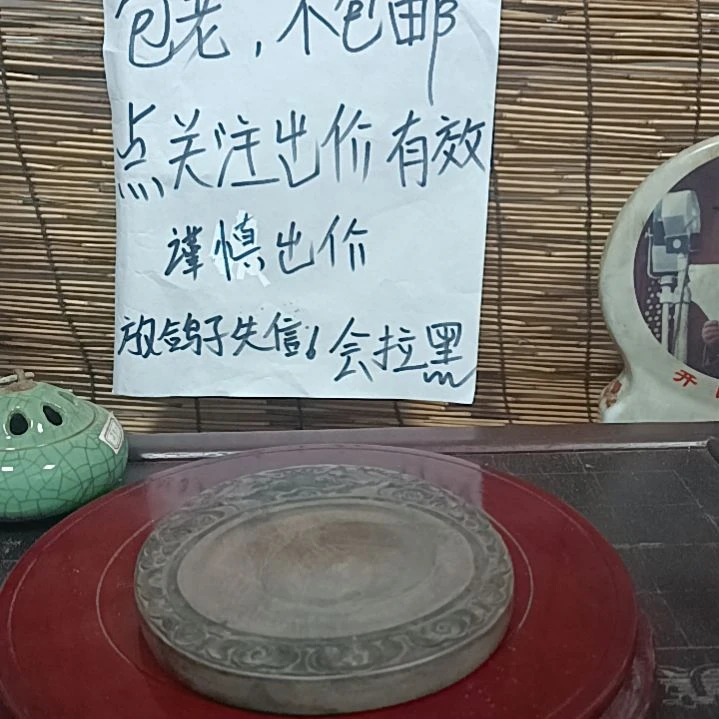 包老，不包邮
点关注出价有效
谨慎出价
放鸽子失信！会拉黑
开